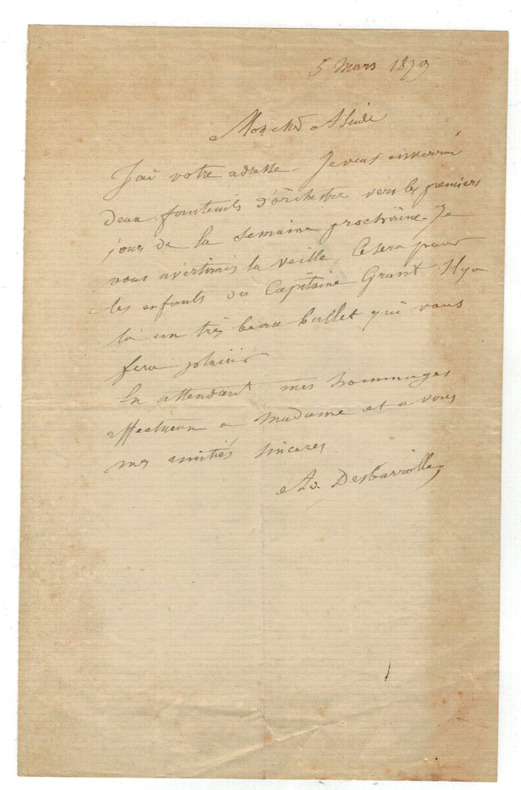 5 Mars 1879
Mon cher
J'ai votre adresse. Je vous enverrai
deux fauteuils d'orchestre vers les premiers
jours de la semaine prochaine. Je
vous avertirais la veille. Ce sera pour
les enfants du Capitaine Grant. Il y a
là un très beau ballet qui vous
fera plaisir
En attendant mes hommages
affectueux a Madame et a vous
mes amitiés sincères
Ad. Desbarrolles